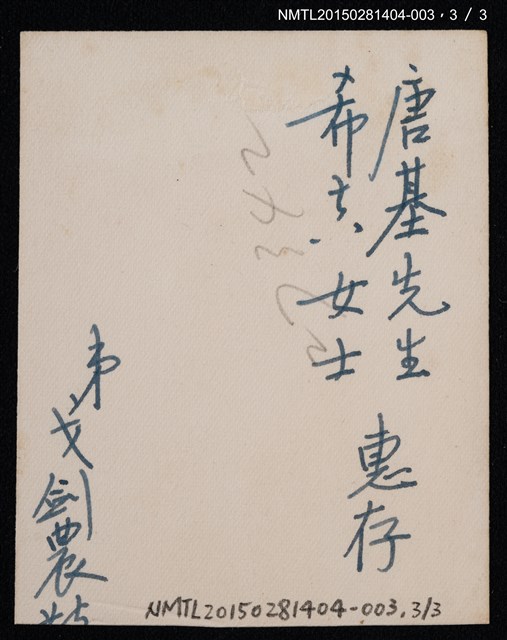 NMTL20150281404-003，3 / 3
唐基先生
希真女士
惠存
弟
戈劍農
NMTL20150281404-003, 3/3